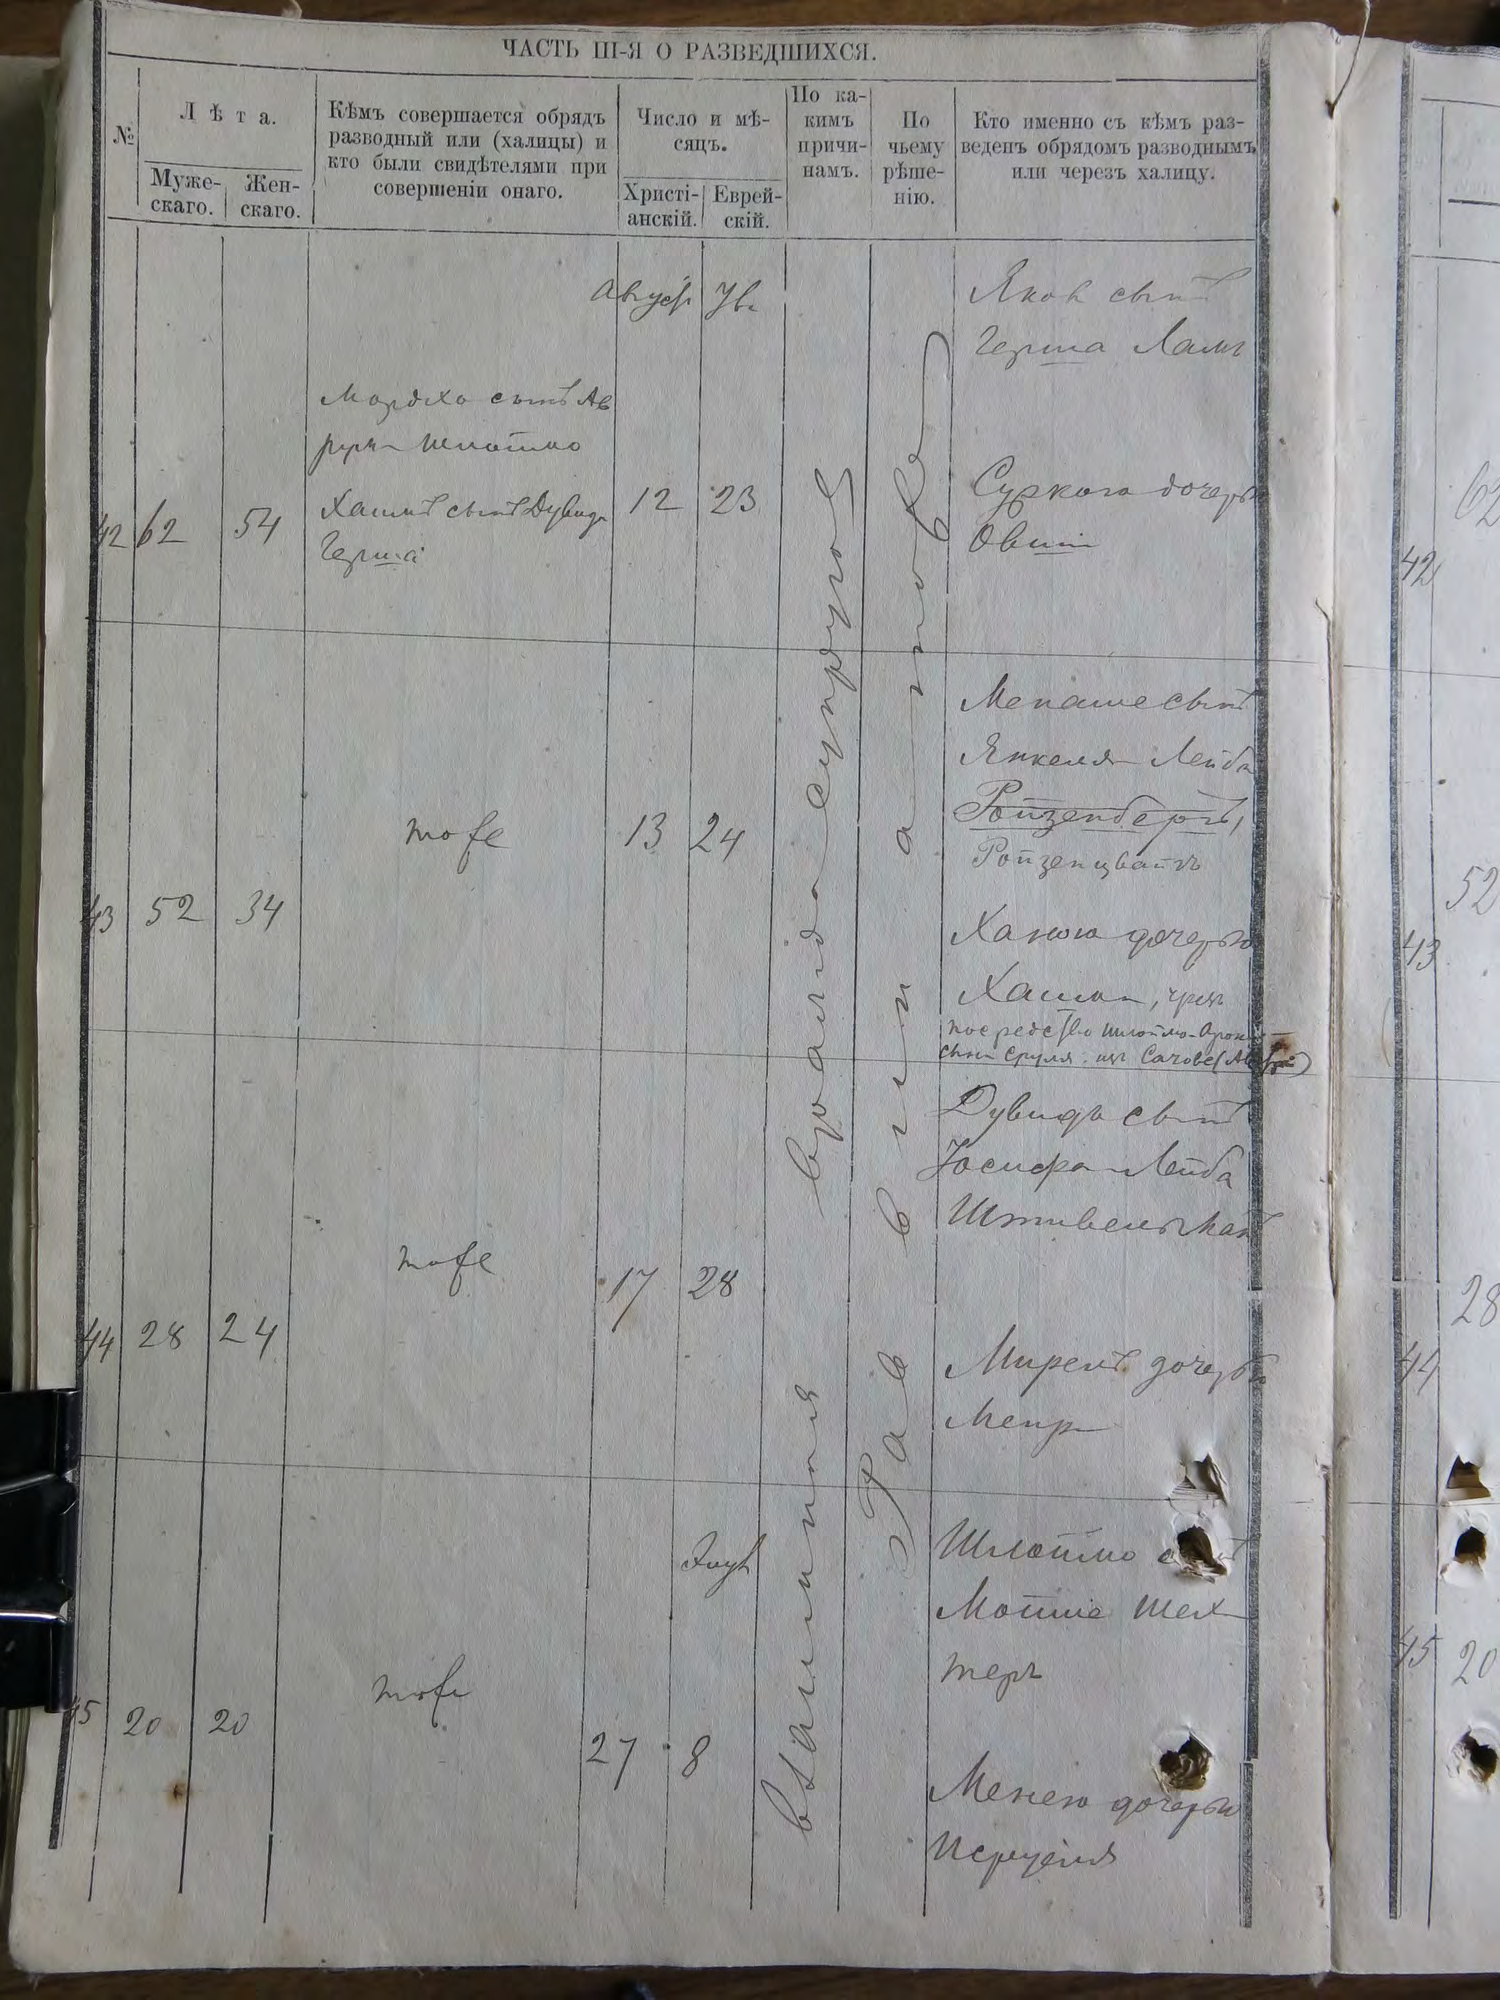 ЧАСТЬ III-Я О РАЗВЕДШИХСЯ.
№
Лѣта.
Муже-
скаго.
Жен-
скаго.
Кѣмъ совершается обрядъ
разводный или (халицы) и
кто были свидѣтелями при
совершеніи онаго.
Число и мѣ-
сяцъ.
Христі-
анскій.
Еврей-
скій.
По ка-
кимъ
причи-
намъ.
По
чьему
рѣше-
нію.
Кто именно съ кѣмъ раз-
веденъ обрядомъ разводнымъ
или черезъ халицу.
42 62 54
Мордхо сынъ Ав
рума Шлоймо
Хаимъ сынъ Дувида
Герша
Август
12 23
взаимная вражда супругов
Раввин
Яков сынъ
Герша
Суркою дочерью
43 52 34
тоже
13 24
Менаше сынъ
Янкеля Лейба
Ройзенбергъ,
Ройзенцвайгъ
Ханою дочерью
Хаима, чрез
посредство Шлоймо-Арон
сына Сруля из
44 28 24
тоже
17 28
Дувидъ сынъ
Иосифа-Лейба
Штивельман
Мирель дочерью
Меира
45 20 20
тоже
Элул
27 8
Шлоймо сынъ
Мойше Шех
теръ
Менею дочерью
Исруеля
42
62
43
52
44
28
45
20